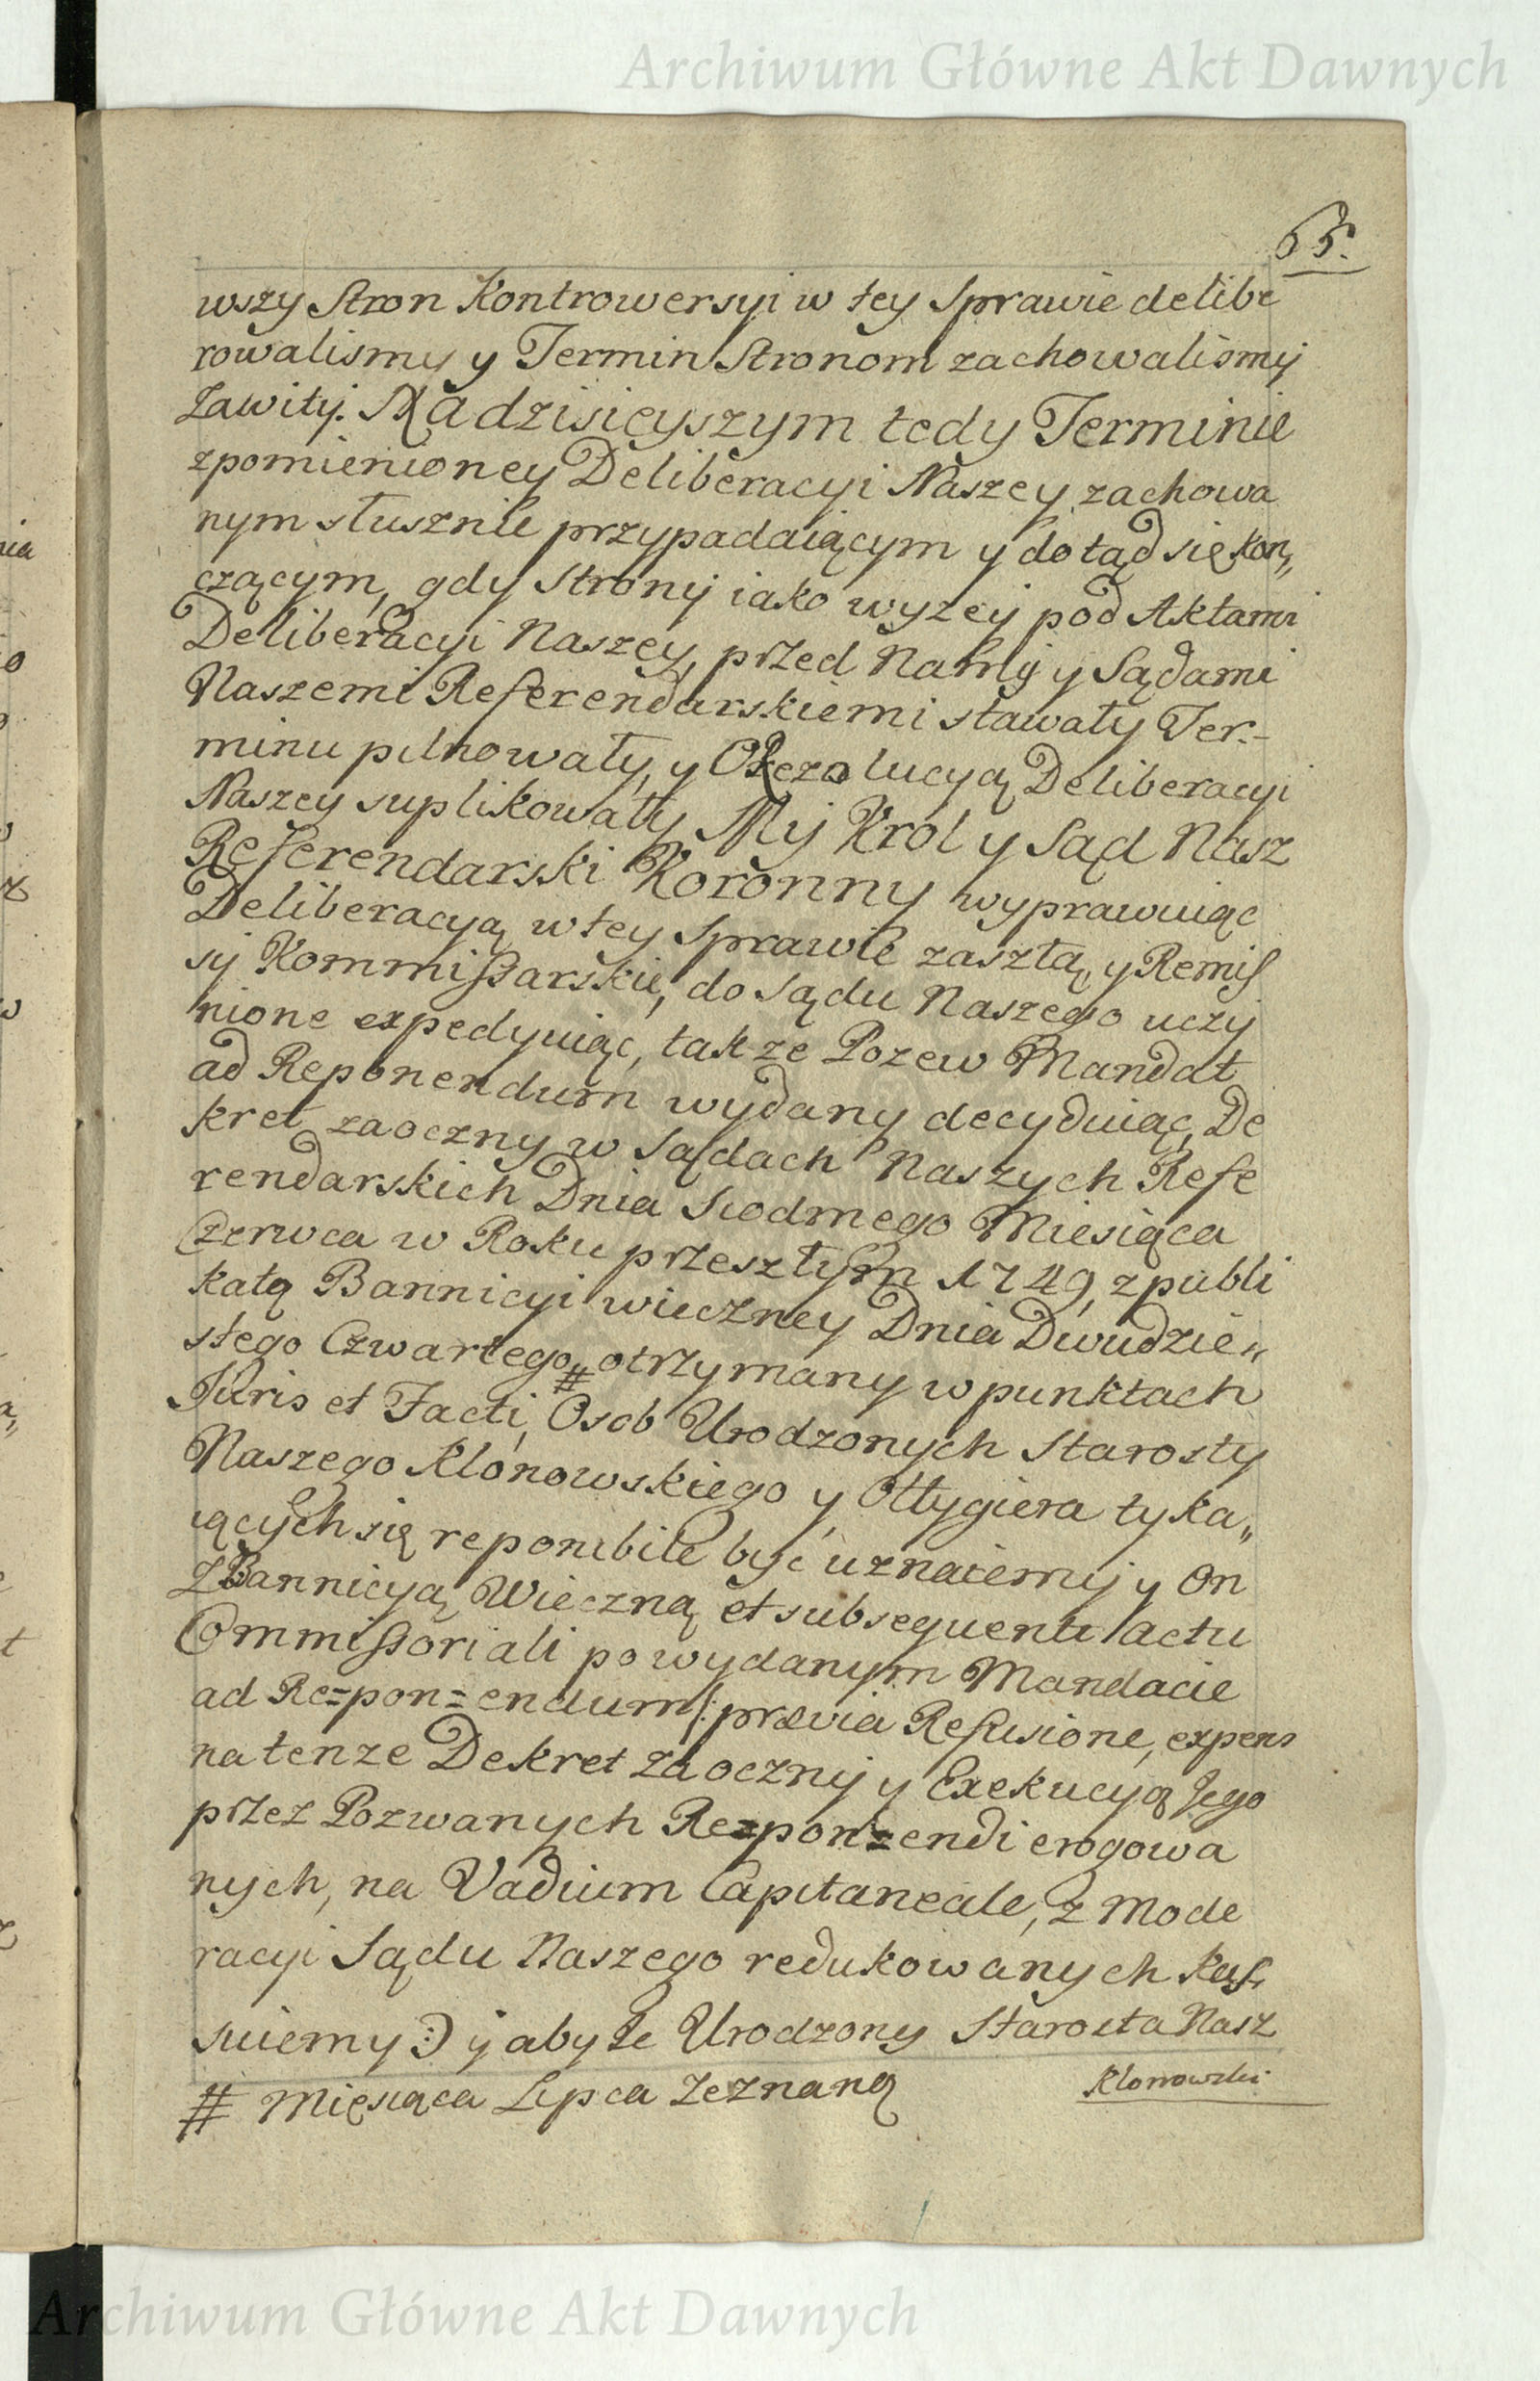 Archiwum Główne Akt Dawnych
65.
wszy Stron Kontrowersyi w tey Sprawie delibe
rowalismy y Termin Stronom zachowalismy
Zawity. Na dzisieyszym tedy Terminie
zpomienioney Deliberacyi Naszey zachowa
nym słusznie przypadaiącym y dotąd się kon„
czącym, gdy Strony iako wyzey pod Aktami
Deliberacyi Naszey, przed Namy y Sądami
Naszemi Referendarskiemi stawały Ter-
minu pilnowały, y O Rezolucyą Deliberacyi
Naszey suplikowały, My Krol y Sąd Nasz
Referendarski Koronny wyprawuiąc
Deliberacyą w tey Sprawie zaszłą, y Remis
sy Kommissarskie, do Sądu Naszego uczy
nione expedyuiąc, takze Pozew Mandat
ad Reponendum wydany decyduiąc, De
kret zaoczny w Sądach Naszych Refe
rendarskich Dnia Siodmego Miesiąca
Czerwca w Roku przeszłym 1749, z publi
katą Bannicyi wieczney Dnia Dwudzie„
stego Czwartego # otrzymany w punktach
Juris et Facti, Osob Urodzonych Starosty
Naszego Klonowskiego y Ottygiera tyka„
iących się reponibile być uznaiemy y On
Z Bannicyą Wieczną et subsequenti actu
Commissoriali po wydanym Mandacie
ad Re=pon=endum /: prævia Refusione, expens
na tenze Dekret zaoczny y Exekucyą Jego
przez Pozwanych Re=pon=endi erogowa
nych, na Vadium Capitaneale, z Mode
racyi Sądu Naszego redukowanych kas„
suiemy :) y aby ze Urodzony Starosta Nasz
Klonowski
# Miesiąca Lipca Zeznaną
Archiwum Główne Akt Dawnych